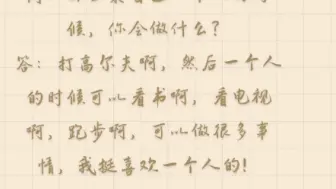 候，你会做什么？
答：打高尔夫啊，然后一个人
的时候可以看书啊，看电视
啊，跑步啊，可以做很多事
情，我挺喜欢一个人的！